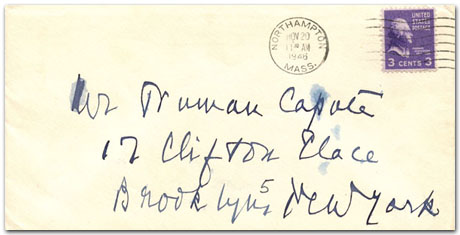 NORTHAMPTON
NOV 20
11 AM
1946
MASS.
UNITED
STATES
POSTAGE
3 CENTS 3
Mr Truman Capote
17 Clifton Place
Brooklyn 5 New York